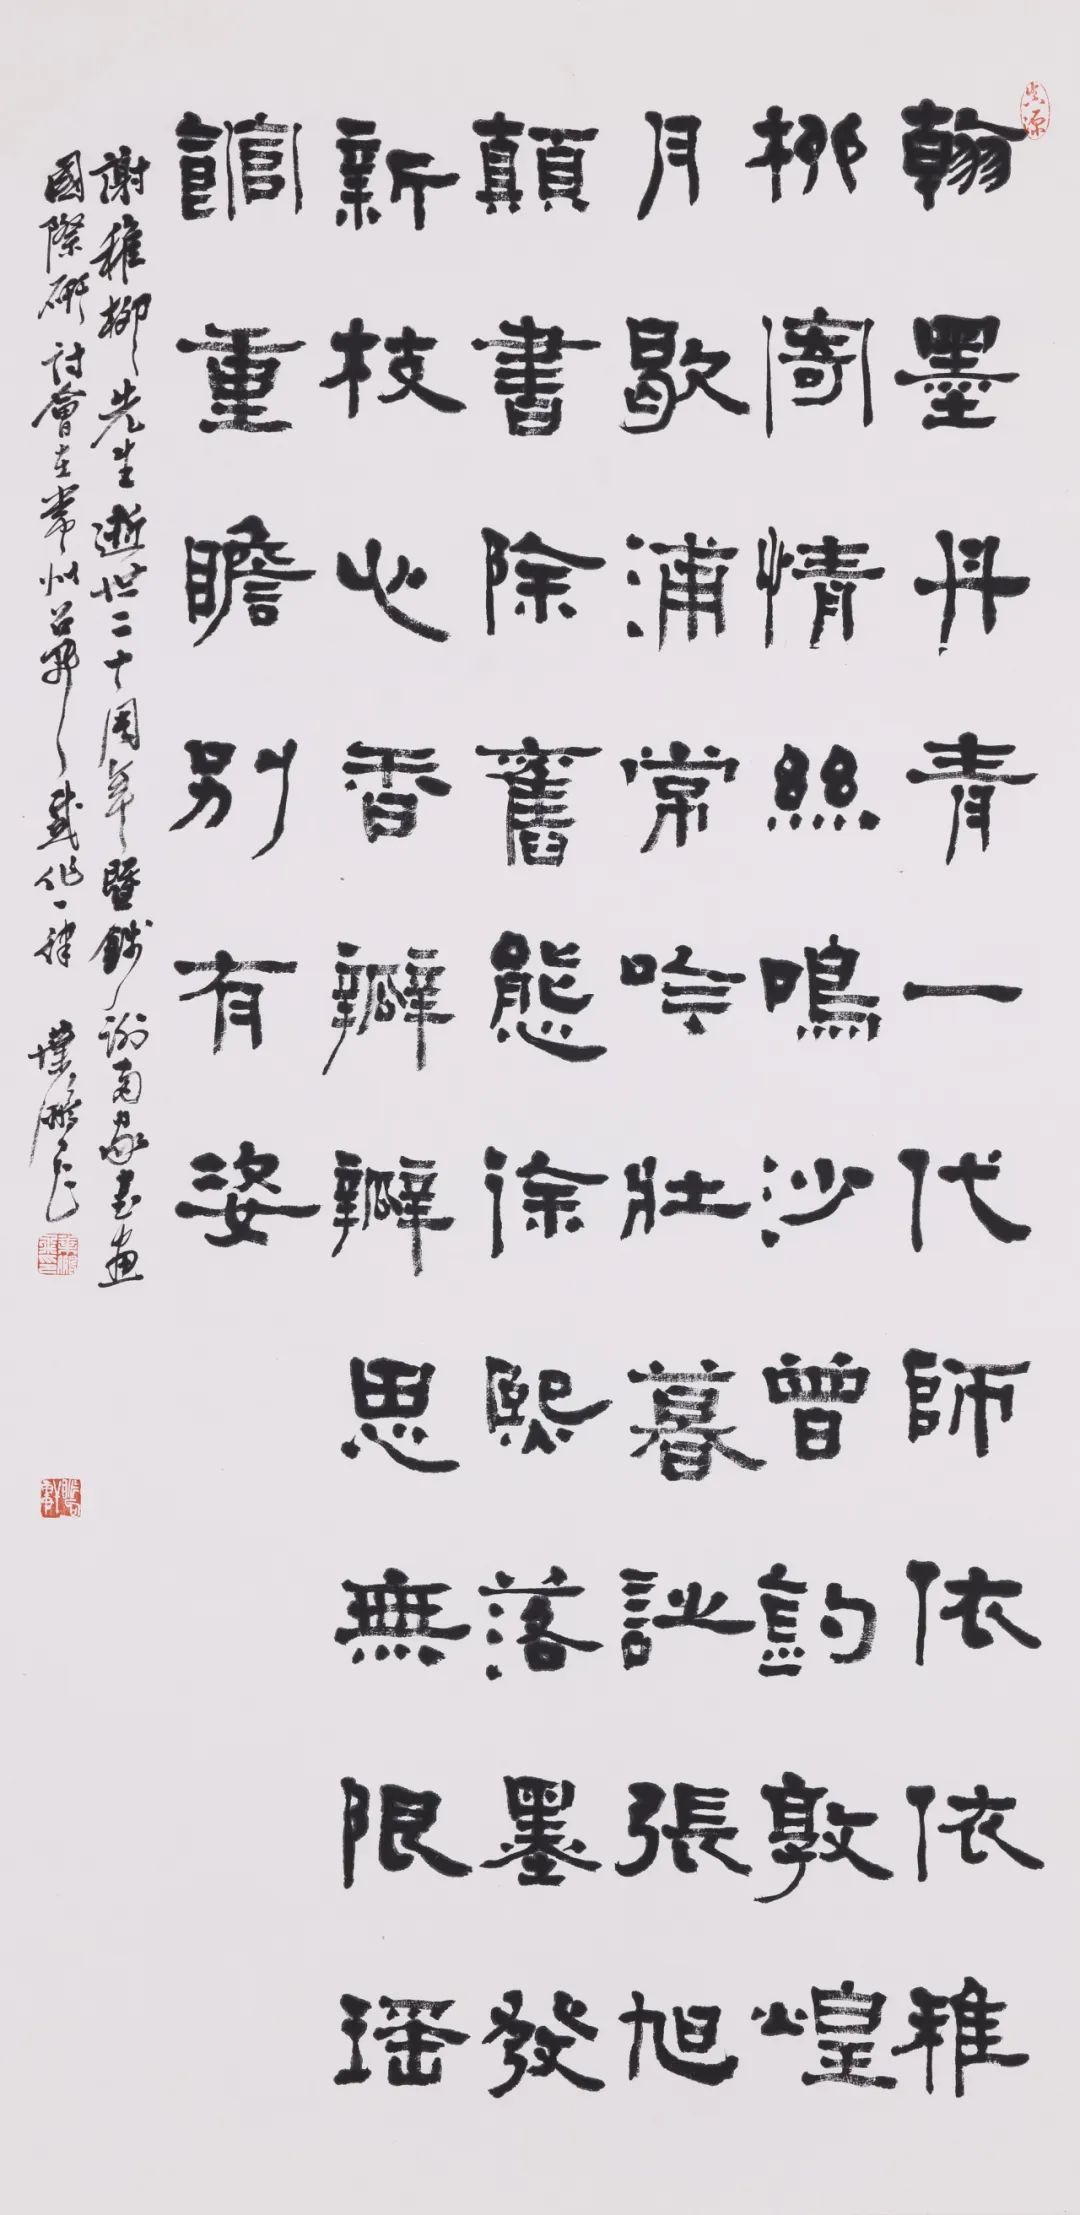 翰墨丹青一代師依依稚
柳寄情絲鳴沙曾韵敦煌
月歇浦常吟壯暮詩張旭
顛書除舊態徐熙落墨發
新枝心香瓣瓣思無限瑶
館重瞻別有姿
謝稚柳先生逝世二十周年暨錢謝兩家書畫
國際研討會在常州召開感作一律 葉鵬飛